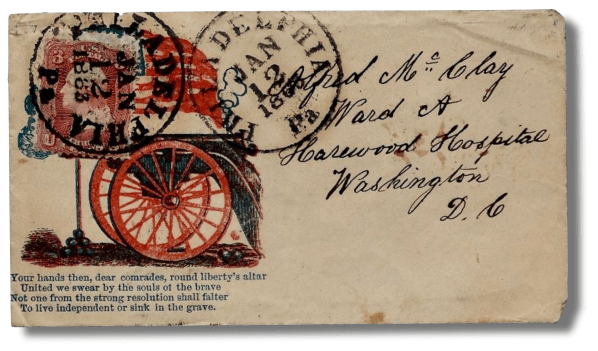 PHILADELPHIA
JAN
12
1863
Pa
PHILADELPHIA
JAN
12
Pa
Alfred Mc Clay
Ward A
Harewood Hospital
Washington
D. C
Your hands then, dear comrades, round liberty's altar
United we swear by the souls of the brave
Not one from the strong resolution shall falter
To live independent or sink in the grave.